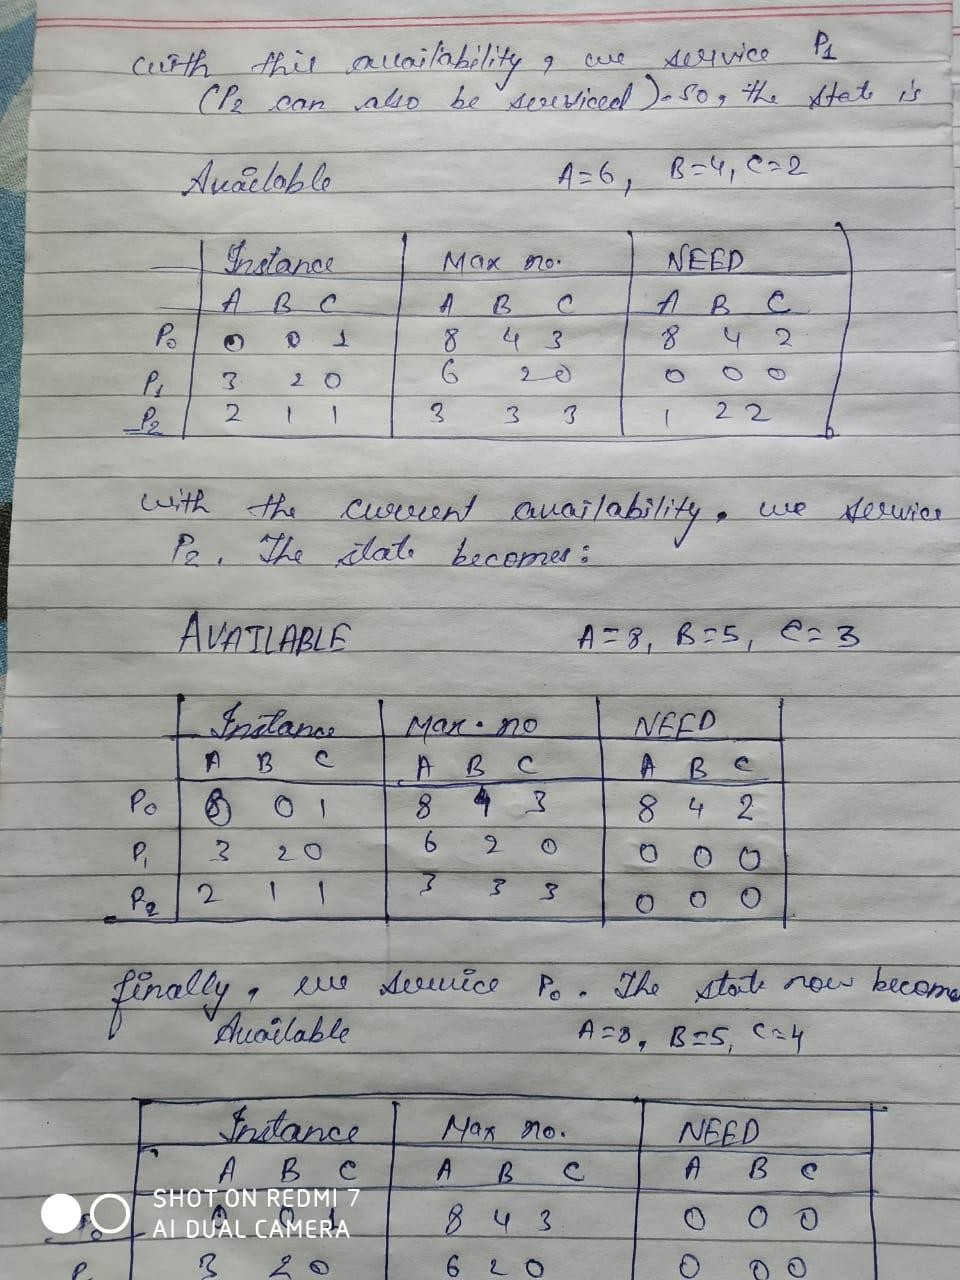 with this availability, we service P1
(P2 can also be serviced). So, the state is
Available A=6, B=4, C=2
Instance Max no. NEED
A B C A B C A B C
P0 0 0 1 8 4 3 8 4 2
P1 3 2 0 6 2 0 0 0 0
P2 2 1 1 3 3 3 1 2 2
with the current availability, we service
P2. The state becomes:
AVAILABLE A=8, B=5, C=3
Instance Max. no NEED
A B C A B C A B C
P0 0 1 8 4 3 8 4 2
P1 3 2 0 6 2 0 0 0 0
P2 2 1 1 3 3 3 0 0 0
finally, we service P0. The state now become
Available A=8, B=5, C=4
Instance Max no. NEED
A B C A B C A B C
P0 0 0 1 8 4 3 0 0 0
3 2 0 6 2 0 0 0 0
SHOT ON REDMI 7
AI DUAL CAMERA